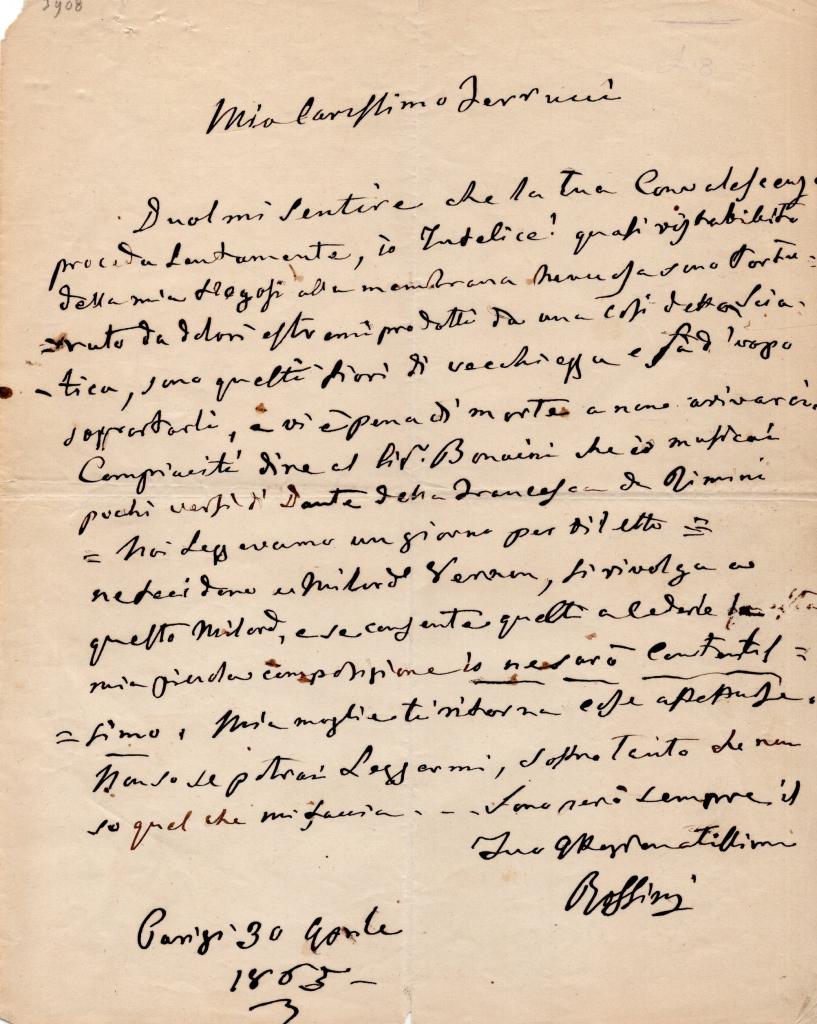 3908
Mio Carissimo Ferrucci
Duolmi sentire che la tua Convalescenza
proceda Lentamente, io Infelice! quasi ristabilito
della mia flogosi alla membrana nervosa sono Tortu=
=rato da dolori estremi prodotti da una così detta Scia-
-tica, sono questi fiori di vecchiezza e fà d'uopo
sopportarli, e vi è pena di morte a non arivarci.
Compiaciti dire al Sigr. Bonaini che io musicai
pochi versi di Dante della Francesca da Rimini
= Noi Leggevamo un giorno per diletto =
ne feci dono a Milord Vernon, si rivolga a
questo Milord, e se consente questi a cederle
mia piccola composizione io ne sarò Contentis=
=simo. Mia moglie ti ritorna cose affettuose.
Non so se potrai Leggermi, soffro tanto che non
so quel che mi faccia . - - Sono però sempre il
Tuo Affezionatissimo
Rossini
Parigi 30 Aprile
1865 -